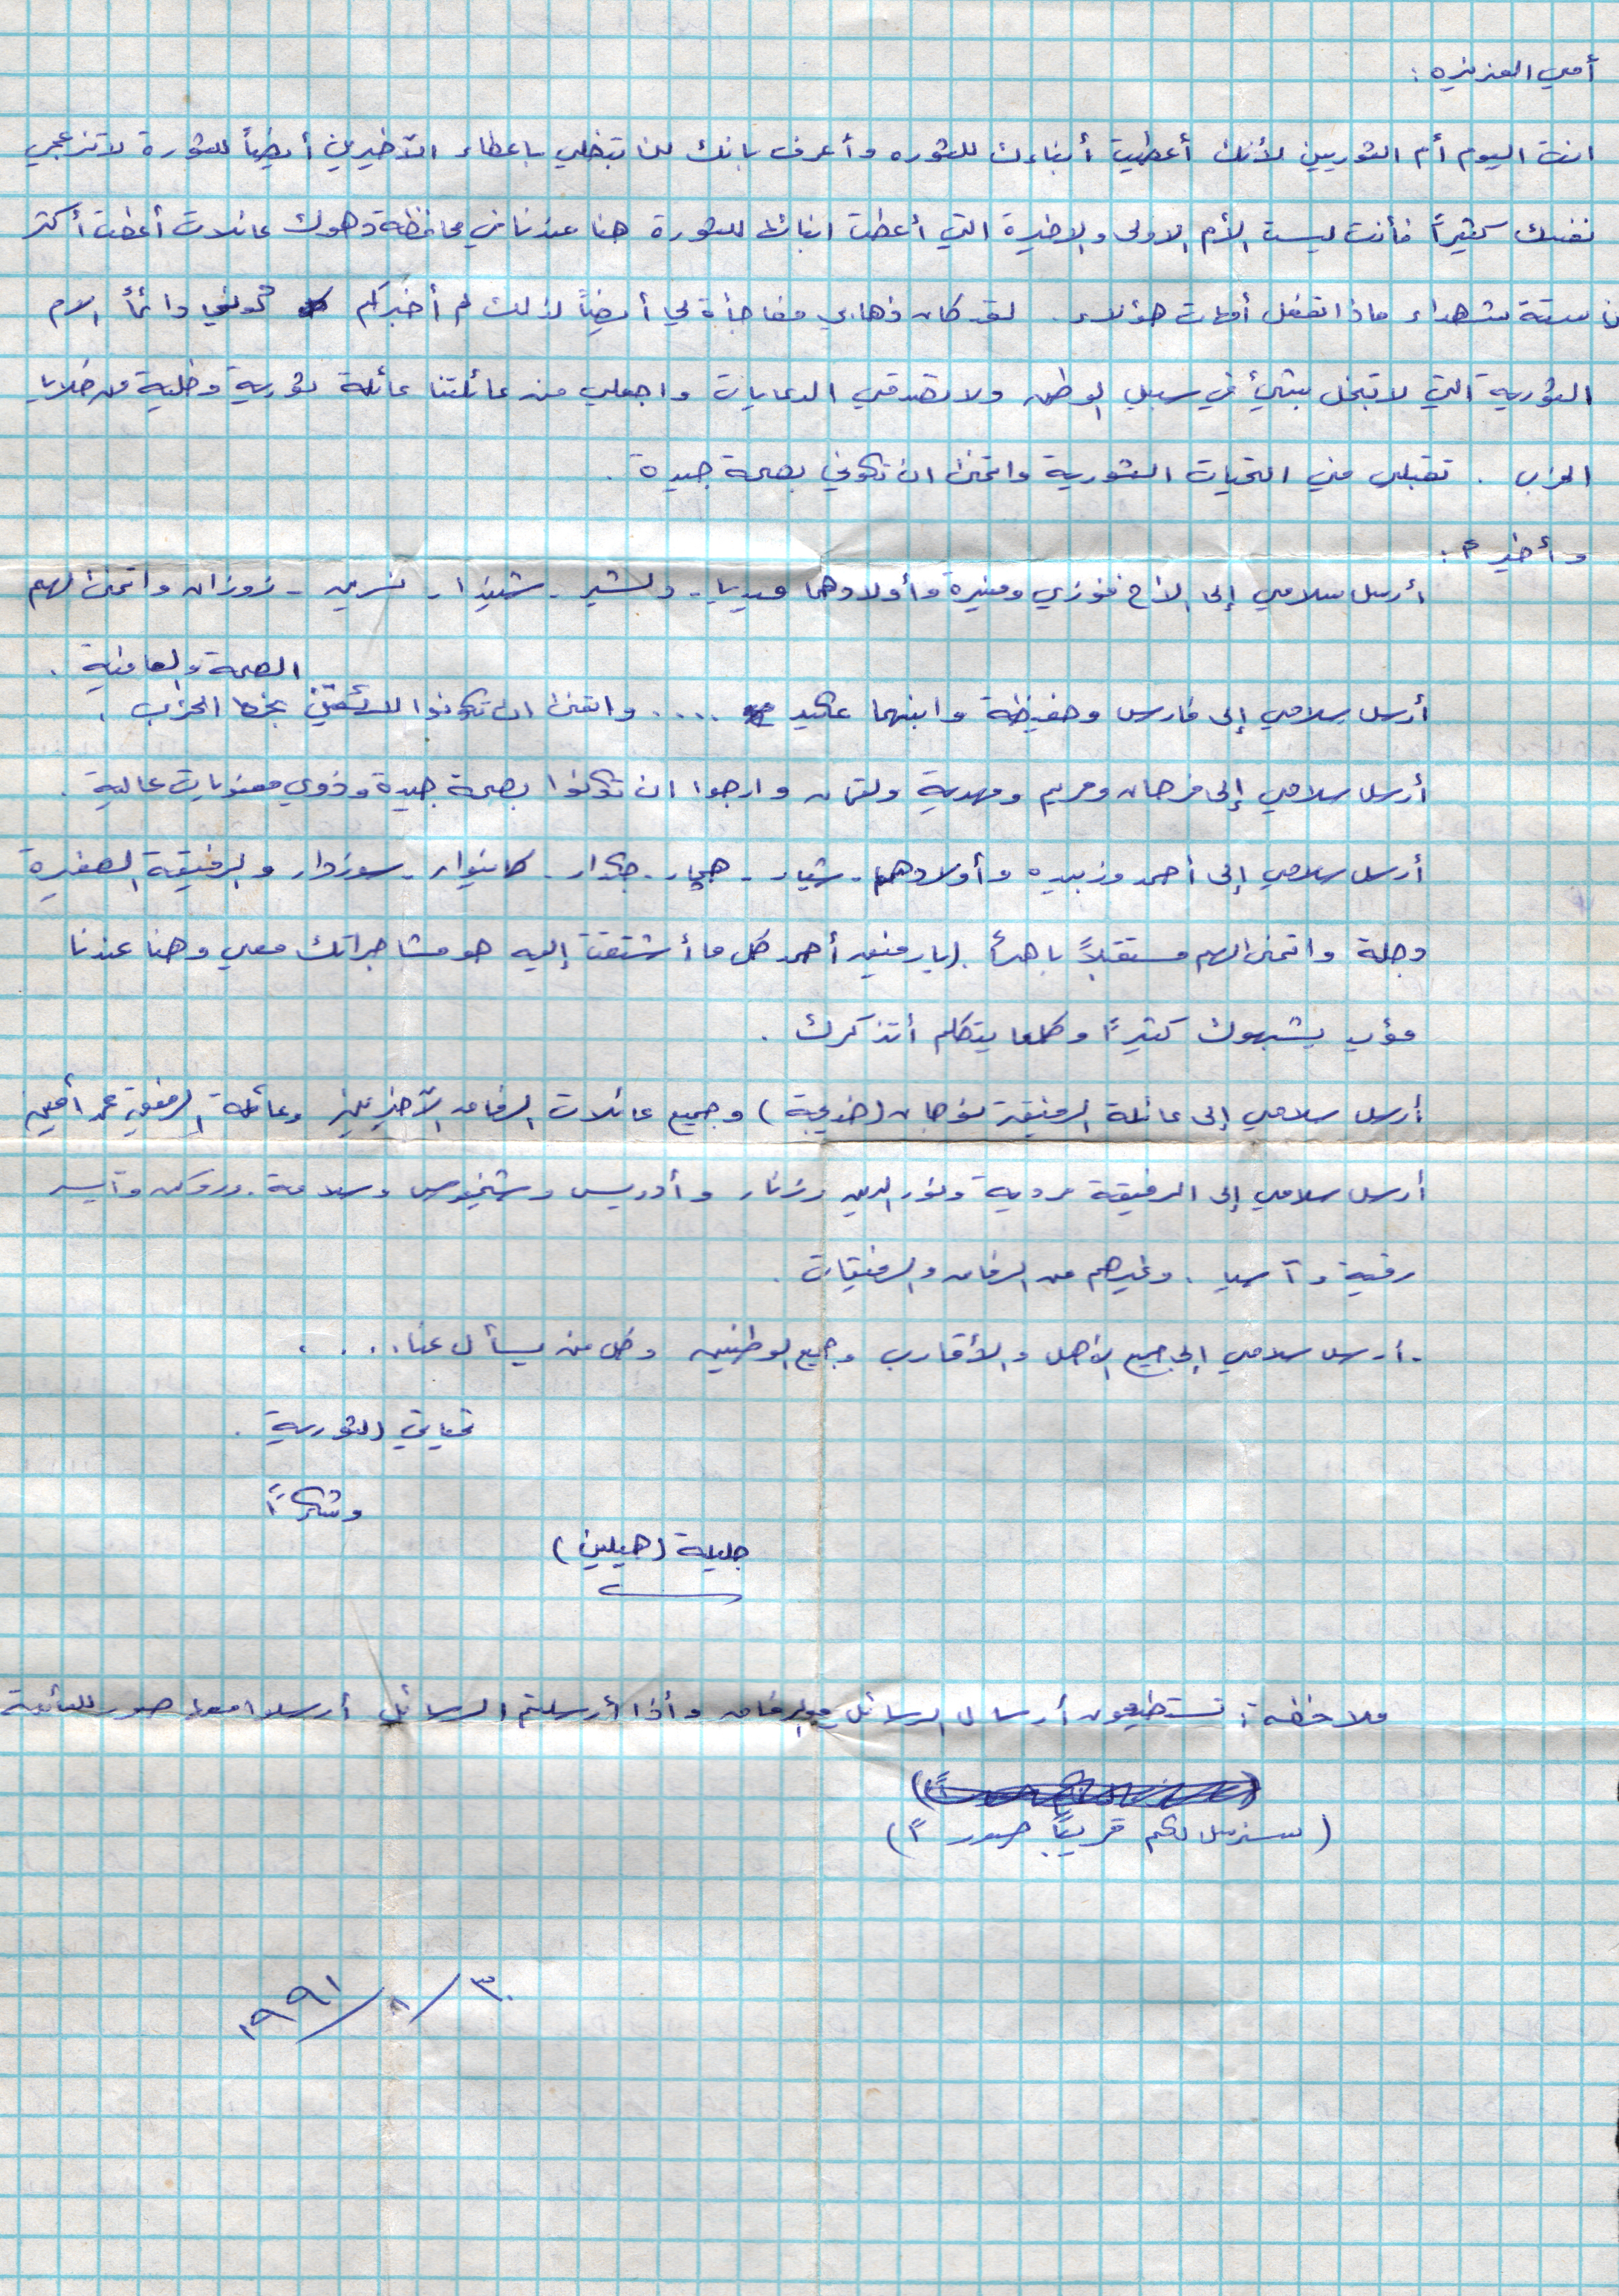 أمي العزيزه :
انت اليوم أم الثوريين لأنك أعطيت أبناءك للثوره وأعرف بانك لن تبخلي باعطاء الآخرين أيضاً للثورة لاتزعجي
نفسك كثيراً فأنت ليست الأم الاولى والاخيرة التي أعطت ابنائها للثورة هنا عندنا في محافظة دهوك عائلات أعطت أكثر
من ستة شهداء ماذا تفعل أمهات هؤلاء . لقد كان ذهابي مفاجأة لي أيضاً لذلك لم أخبركم كوني دائماً الام
الثورية التي لاتبخل بشيئ في سبيل الوطن ولا تصدقي الدعايات واجعلي من عائلتنا عائلة ثورية وخلية من خلايا
الحزب . تقبلي مني التحيات الثورية واتمنى ان تكوني بصحة جيدة .
وأخيراً :
أرسل سلامي إلى الاخ فوزي ومنيرة وأولادهما ميديا - دلشير - شيندا - نسرين - زوزان واتمنى لهم
الصحة والعافية .
أرسل سلامي إلى فارس وحفيظة وابنهما عكيد .... واتمنى ان تكونوا لائقين بخط الحزب .
أرسل سلامي إلى فرحان ومريم ومهدية ولقمان وارجوا ان تكونوا بصحة جيدة وذوي معنويات عالية .
أرسل سلامي إلى أحمد وزبيده وأولادهما - شيار - هجار - جكدار - كانيوار - سوزدار والرفيقة الصغيرة
دجلة واتمنى لهم مستقبلاً باهراً . (يارفيق أحمد كل ما أشتقت إليه هو مشاجراتك معي وهنا عندنا
مؤيد يشبهوك كثيراً وكلما يتكلم أتذكرك .
أرسل سلامي إلى عائلة الرفيقة نوجان (خديجة) وجميع عائلات الرفاق الآخريين وعائلة الرفيق محمد أمين
أرسل سلامي إلى الرفيقة بردية ونور الدين وزنار وأدريس وشيخموس وسلامة . ودوكن وآيسر
رقية وآسيا . وغيرهم من الرفاق والرفيقات .
- أرسل سلامي إلى جميع الاهل والأقارب وجميع الوطنيين وكل من يسأل عنا ....
تحياتي الثورية .
وشكراً
جليلة (هيلين)
ملاحظة : تستطيعون أرسال الرسائل مع الرفاق وأذا أرسلتم الرسائل أرسلوا معها صور للعائلة
(سنرسل لكم قريباً صوراً)
٣٠/١/١٩٩١